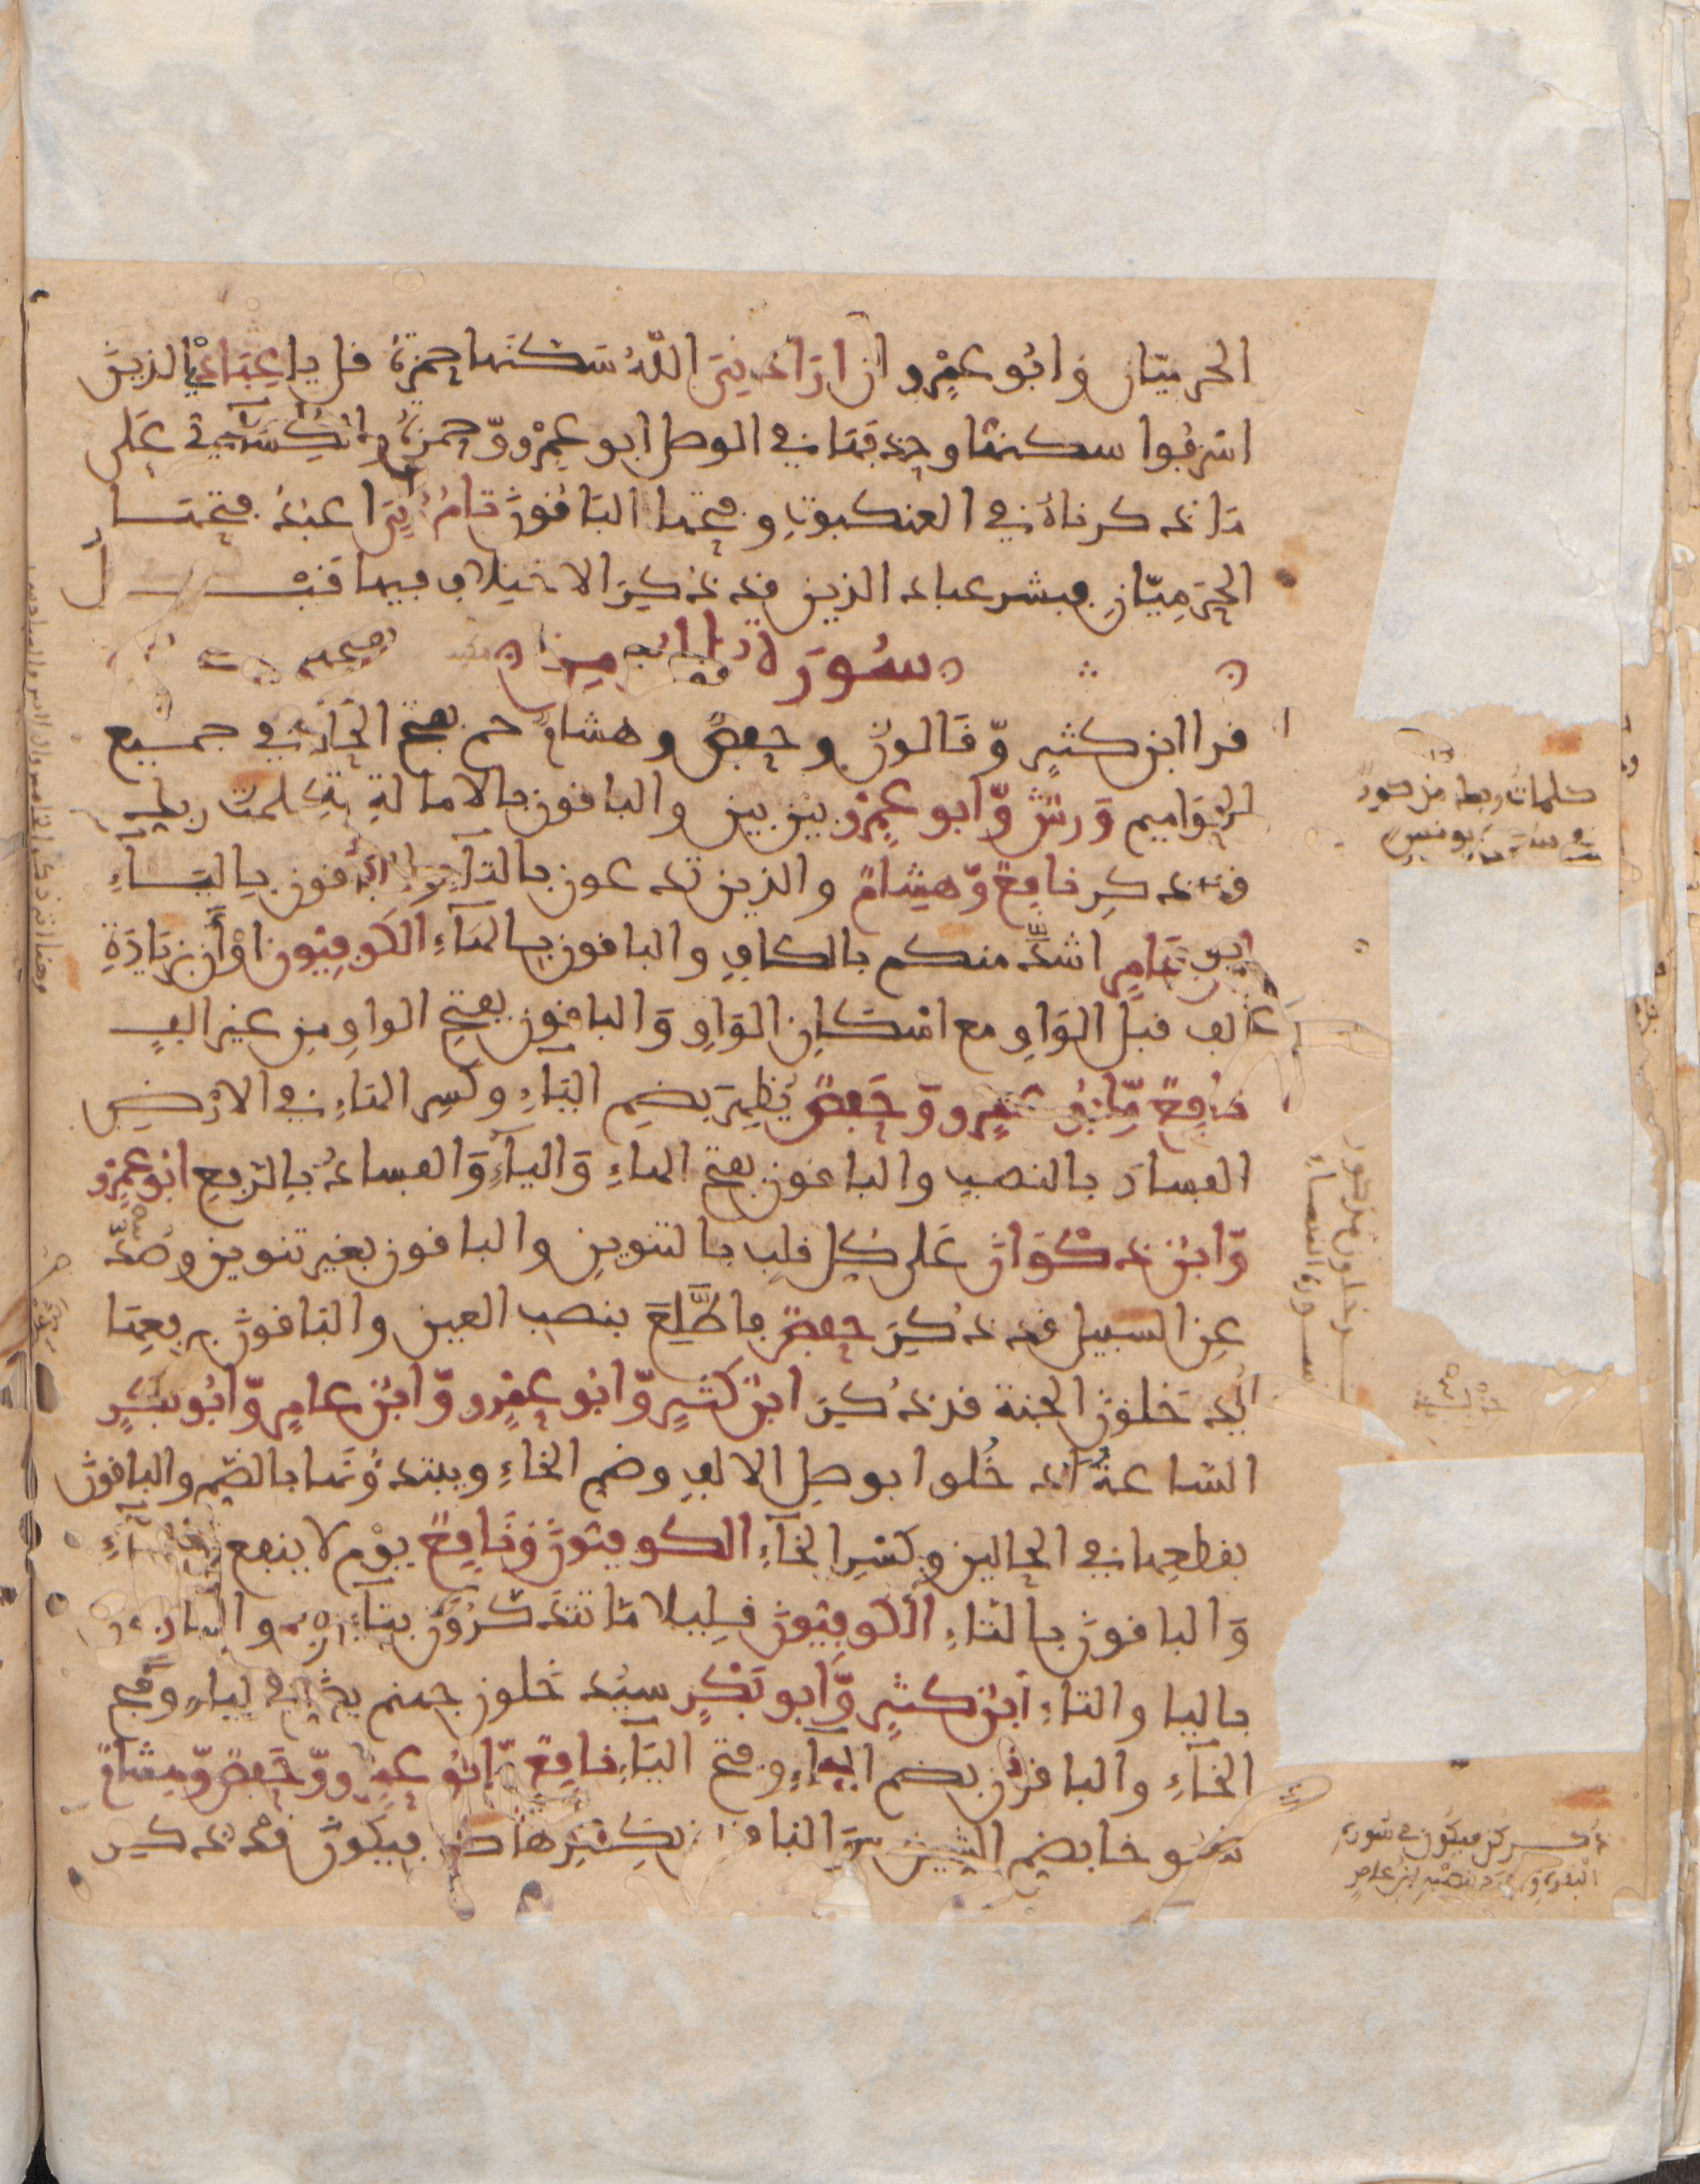 الحرميّان وابُو عمْرٍو ان ارَادنِيَ اللّهُ سَكنَها حمزةُ قل يا عِبَادِيَ الذين
اسْرفُوا سكنها وحذفَها في الوصل ابو عمْرٍو وّحمزةُ والكِسَآئي عَلى
مَا ذكرناهُ في العنكبوتِ وفتحها البَاقُونَ تامُرُنِيَ اعبُدُ فتحهَا
الحَرمِيّانِ فبشر عباد الذين قد ذُكِرَ الاختِلافُ فيما قَبْل
سُورَة المومن
قرا ابن كثيرٍ وّقَالونُ وحفصٌ وهشامٌ حم بفتح الحَآءِ في جميع
الحَوَاميم وَرشٌ وّابو عمرٍو بين بين والباقون بالامالةِ كلمت ربك
قد ذكر نافعٌ وّهِشامٌ والذين تدعون بالتآءِ والباقون باليَآءِ
ابن عَامرٍ اشدَّ منكم بالكافِ والباقون بالهَآءِ الكوفِيّون اوْ أن بزيَادَةِ
الف قبلَ الوَاوِ مع اسْكانِ الوَاوِ وَالباقون بفتحِ الواوِ من غير الفٍ
نافعٌ وّابُو عمرٍو وّحَفصٌ يُظهِرَ بضم اليَآءِ وكسر الهاءِ في الارْضِ
الفسادَ بالنصبِ والباقون بفتح الهاءِ وَاليآءِ وَالفسادُ بالرّفعِ ابو عمرٍو
وّابنُ ذكوَانَ عَلى كلِ قلبٍ بالتنوينِ والباقون بغير تنوين وصُدَّ
عن السبيل قد ذُكِرَ حفصٌ فاطَّلِعَ بنصب العين والبَاقونَ برفعِهَا
يُدخَلونَ الجنة قد ذُكِرَ ابنُ كثيرٍ وّابُو عمْرٍو وّابنُ عامرٍ وّابُو بكرٍ
السّاعةُ ادخُلوا بوصلِ الالفِ وضم الخاءِ ويبتدءُونَها بالضّم والباقونَ
بقطعِها في الحالين وكسْرِ الخَآءِ الكوفيّونَ وَنَافعٌ يوْم لا ينفع باليآءِ
وَالباقونَ بالتاءِ الكوفِيّونَ قليلا مّا تتذكرُونَ بتآءين والباقون
باليا والتاءِ ابنُ كثيرٍ وّابُو بَكرٍ سيُدخلون جهنم بضم الياءِ وَفتحِ
الخآءِ والباقونَ بفتح اليآءِ وضم الخَآءِ نافعٌ وّابُو عمرٍو وّحَفصٌ وّهشامٌ
شُيوخا بضم الشين والباقون بكسْرِها كن فيكونَ قد ذكر
كلمات ربك مذكور
في سورة يونس
يدخلون مذكور
سورة النساء
ذكر كن فيكون في سُورَة
البقرةِ